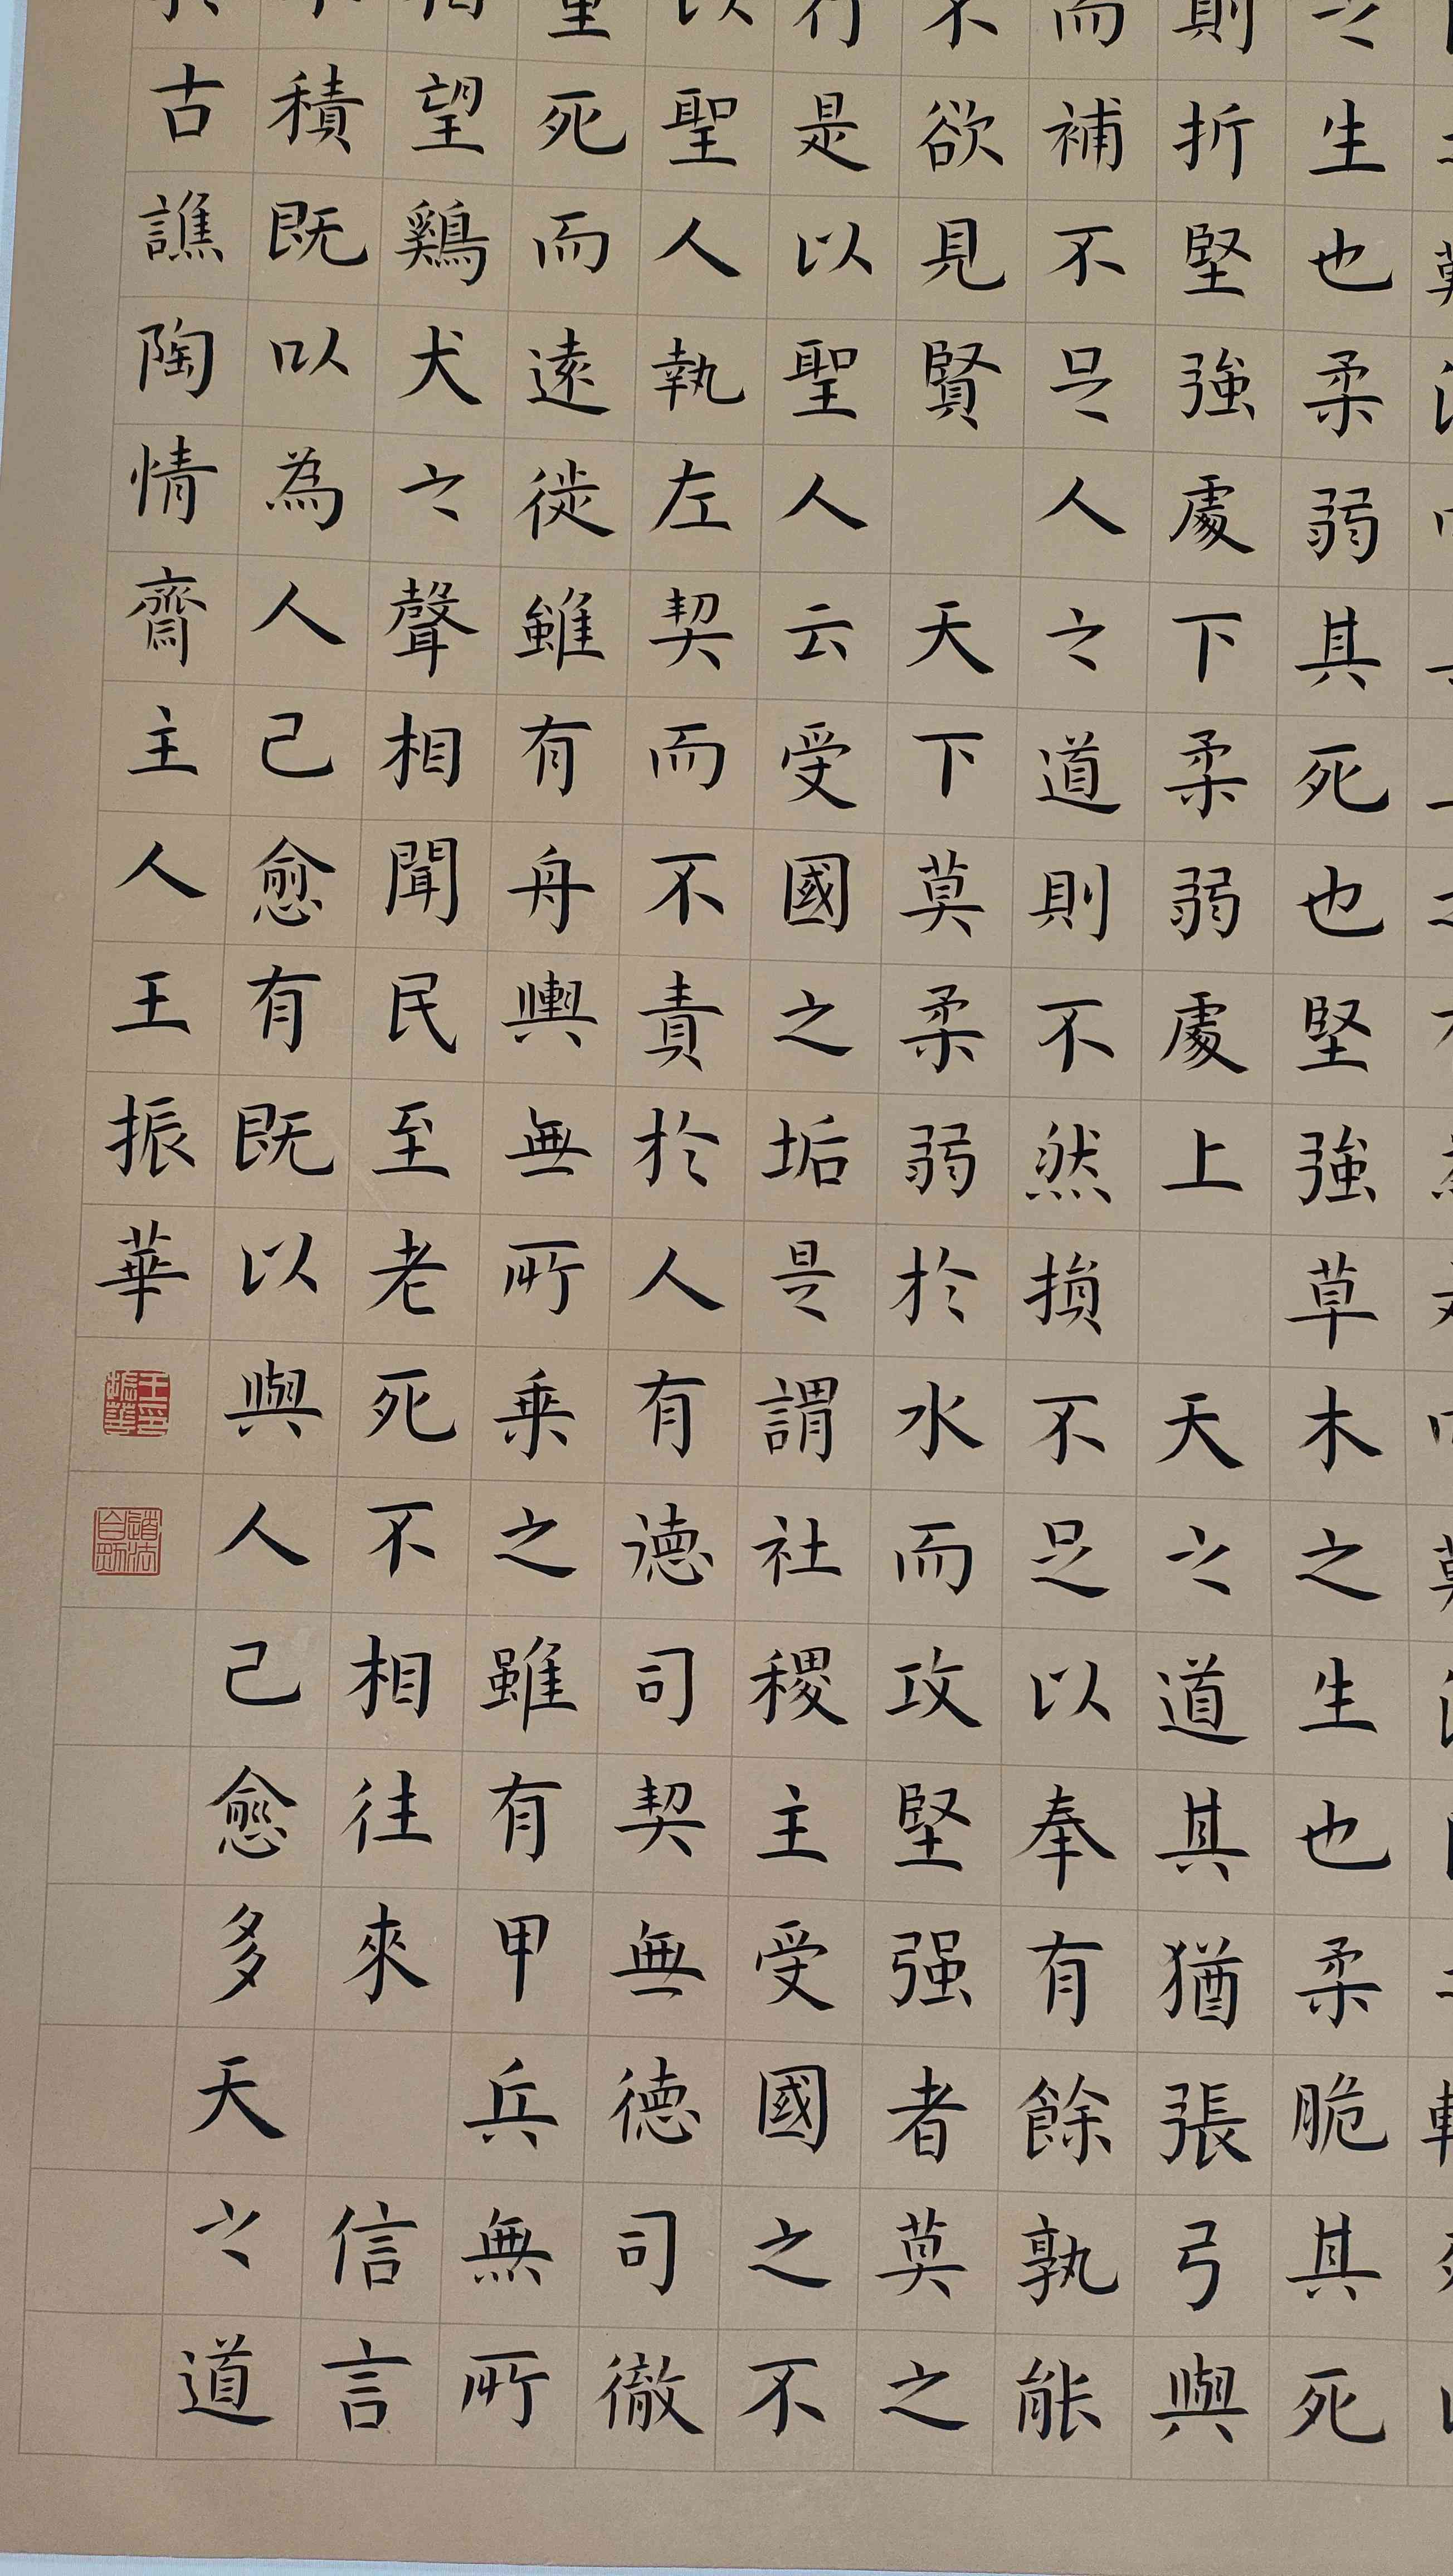 生也柔弱其死也堅強草木之生也柔脆其死
則折堅強處下柔弱處上 天之道其猶張弓與
而補不足人之道則不然損不足以奉有餘孰能
不欲見賢 天下莫柔弱於水而攻堅强者莫之
行是以聖人云受國之垢是謂社稷主受國之不
以聖人執左契而不責於人有德司契無德司徹
重死而遠徙雖有舟輿無所乘之雖有甲兵無所
望鷄犬之聲相聞民至老死不相往來 信言
積既以為人己愈有既以與人己愈多天之道
古譙陶情齋主人王振華
王振華印
道法自然